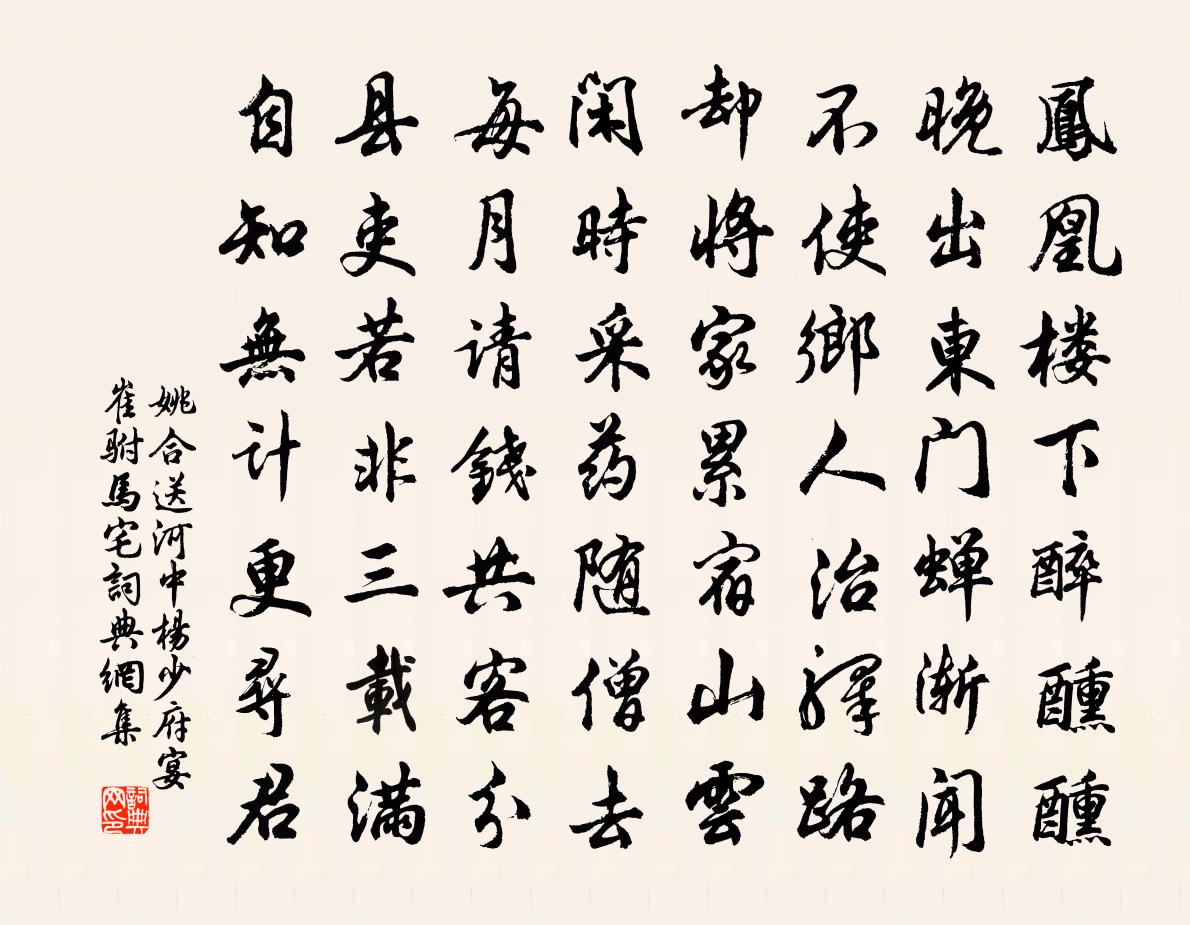 鳳凰楼下醉醺醺
晚出東门蝉渐闻
不使鄉人治驛路
却將家累宿山雲
闲時采药随僧去
每月请錢共客分
县吏若非三載满
自知無计更尋君
姚合送河中楊少府宴
崔駙馬宅詞典網集
詞典网印